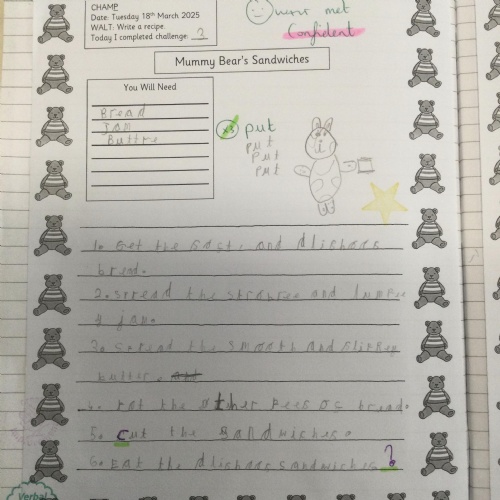 CHAMP
Date: Tuesday 18th March 2025
WALT: Write a recipe.
Today I completed challenge: 3
met
Confident
Mummy Bear's Sandwiches
You Will Need
Bread
Jam
Buttre
x3 put
put
put
put
1. Get the soct, and dlishars
bread.
2. spread the and lumpee
y jam.
3. spread the smooth and slippey
butter.
4. pot the uther pees oc bread.
5. cut the sandwiches.
6. Eat the dlishars sandwiches.?
Verbal